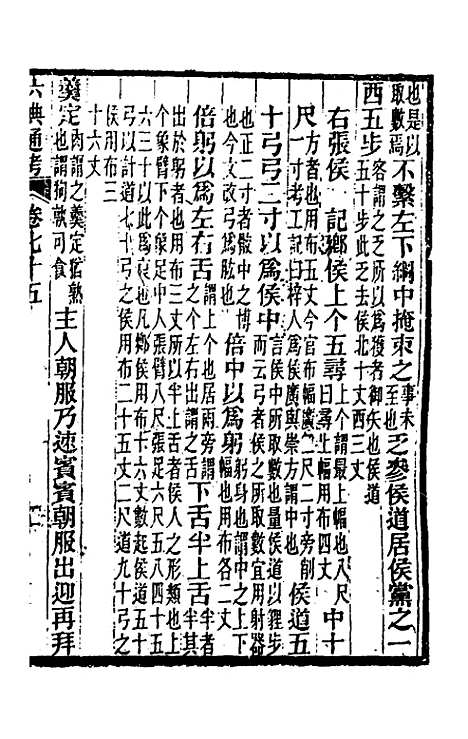 也是以
取數焉
不繫左下綱中掩束之
事未
至也
乏參侯道居侯黨之一
西五步
容謂之乏所以為獲者御矢也侯道
五十步此乏去侯北十丈西三丈
右張侯　記鄉侯上个五尋
上个謂最上幅也八尺
曰尋上幅用布四丈
中十
尺
方者也用布五丈今官布幅廣二尺二寸旁削
一寸考工記曰梓人為侯廣與崇方謂中也
侯道五
十弓弓二寸以為侯中
言侯中所取數也量侯道以貍步
而云弓者侯之所取數宜用射器
也正二寸者骹中之博
也今文改弓為肱也
倍中以為躬
躬身也謂中之上下
幅也用布各二丈
倍躬以為左右舌
謂上个也居兩旁謂
之个左右出謂之舌
下舌半上舌
半者
半其
出於躬者也用布三丈所以半上舌者侯人之形類也上
个象臂下个象足中人張臂八尺張足六尺五八四十五
六三十以此為衰也凡鄉侯用布十六丈數起侯道五十
弓以計道七十弓之侯用布二十五丈二尺道九十弓之
侯用布三
十六丈
羹定
肉謂之羹定猶熟
也謂狗孰可食
主人朝服乃速賓賓朝服出迎再拜
六典通考
卷七十五